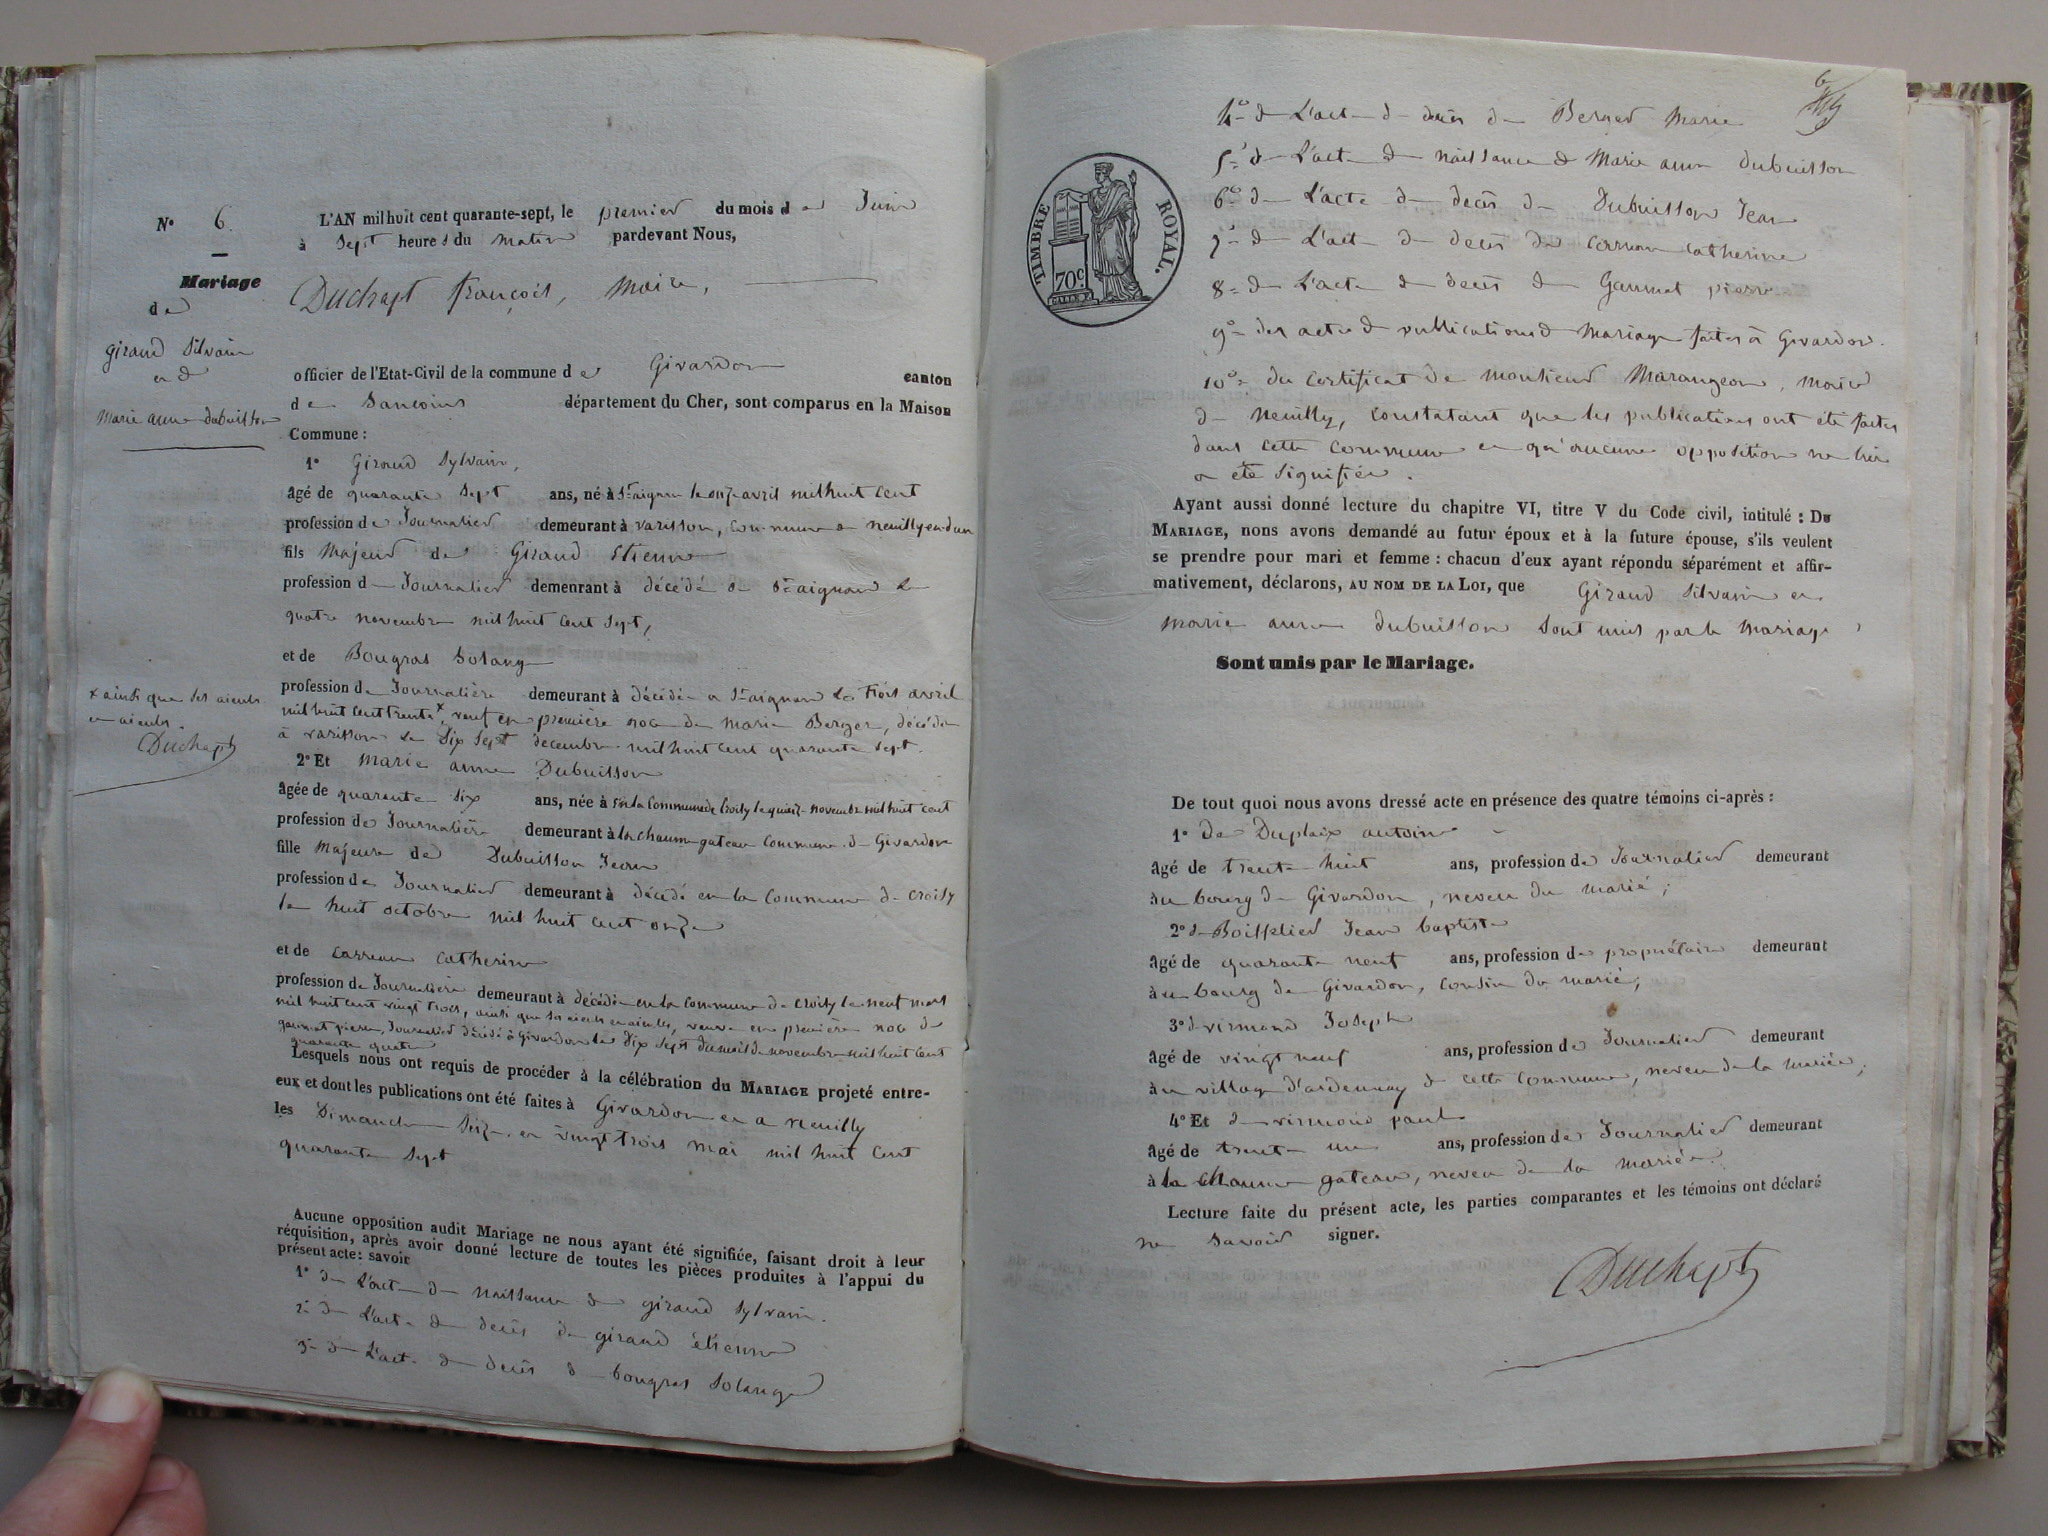 N° 6.
Mariage
de
giraud Silvain
et de
Marie anne dubuisson
L'AN mil huit cent quarante-sept, le premier du mois de Juin
à Sept heures du matin pardevant Nous,
Duchapt françois, Maire,
officier de l'Etat-Civil de la commune de Givardon canton
de Sancoins département du Cher, sont comparus en la Maison
Commune :
1° Giraud Sylvain,
âgé de quarante Sept ans, né à St aignan le onze avril mil huit cent
profession de Journalier demeurant à varisson, commune de neuilly en dun
fils Majeur de Giraud Etienne
profession de Journalier demeurant à décédé à St aignan le
quatre novembre mil huit cent Sept,
et de Bougras Solange
profession de Journalière demeurant à décédée à St aignan le Trois avril
mil huit cent trente x, veuf en première noce de Marie Berger, décédée
à varisson le Dix Sept decembre mil huit cent quarante Sept.
x ainsi que ses aieuls
et aieules.
Duchapt
2° Et Marie anne Dubuisson
âgée de quarante Six ans, née à en la Commune de Croisy le quinze novembre mil huit cent
profession de Journalière demeurant à la chaume gateau Commune de Givardon
fille Majeure de Dubuisson Jean
profession de Journalier demeurant à décédé en la Commune de Croisy
le huit octobre mil huit cent onze
et de Carreau Catherine
profession de Journalière demeurant à décédée en la Commune de Croisy le neuf mars
mil huit cent vingt trois, ainsi que ses aieuls et aieules, veuve en première noce de
gaumat pierre, Journalier décédé à Givardon le Dix Sept du mois de novembre mil huit cent
quarante quatre
Lesquels nous ont requis de procéder à la célébration du MARIAGE projeté entre-
eux et dont les publications ont été faites à Givardon et a Neuilly
les Dimanche Seize et vingt trois mai mil huit cent
quarante Sept
Aucune opposition audit Mariage ne nous ayant été signifiée, faisant droit à leur
réquisition, après avoir donné lecture de toutes les pièces produites à l'appui du
présent acte : savoir
1° de L'acte de naissance de giraud Sylvain.
2° de L'acte de decès de giraud étienne
3° de L'acte de decès de bougras Solange
6
4° de L'acte de decès de Berger Marie
5° de L'acte de naissance de Marie anne dubuisson
6° de L'acte de decès de Dubuisson Jean
7° de L'acte de decès de Carreau Catherine
8° de L'acte de decès de Gaumat pierre
9° des actes de publications de Mariage faites à Givardon.
10° du certificat de monsieur Marangeon, maire
de Neuilly, constatant que les publications ont été faites
dans cette commune et qu'aucune opposition ne lui
a été signifiée.
TIMBRE ROYAL.
70c
Ayant aussi donné lecture du chapitre VI, titre V du Code civil, intitulé : DU
MARIAGE, nons avons demandé au futur époux et à la future épouse, s'ils veulent
se prendre pour mari et femme : chacun d'eux ayant répondu séparément et affir-
mativement, déclarons, AU NOM DE LA LOI, que Giraud Silvain et
Marie anne dubuisson Sont unis par le Mariage,
Sont unis par le Mariage.
De tout quoi nous avons dressé acte en présence des quatre témoins ci-après :
1° de Duplaix antoine
âgé de trente huit ans, profession de Journalier demeurant
au bourg de Givardon, neveu du marié ;
2° de Boisplied Jean baptiste
âgé de quarante neuf ans, profession de propriétaire demeurant
à au bourg de Givardon, cousin du marié ;
3° de virmond Joseph
âgé de vingt neuf ans, profession de Journalier demeurant
à au village d'ardennay de cette commune, neveu de la mariée ;
4° Et de virmond paul
âgé de trente un ans, profession de Journalier demeurant
à la chaume gateau, neveu de la mariée.
Lecture faite du présent acte, les parties comparantes et les témoins ont déclaré
ne Savoir signer.
Duchapt